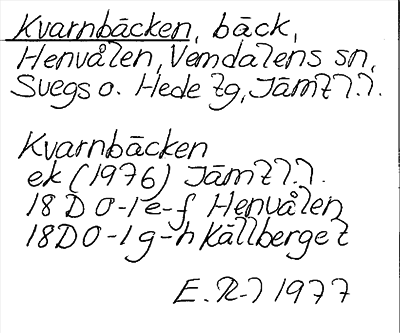 Kvarnbäcken, bäck,
Henvålen, Vemdalens sn,
Svegs o. Hede tg, Jämtl.l.
Kvarnbäcken
ek (1976) Jämtl.l.
18D 0-1e-f Henvålen
18D 0-1g-h Källberget
E.R-l 1977